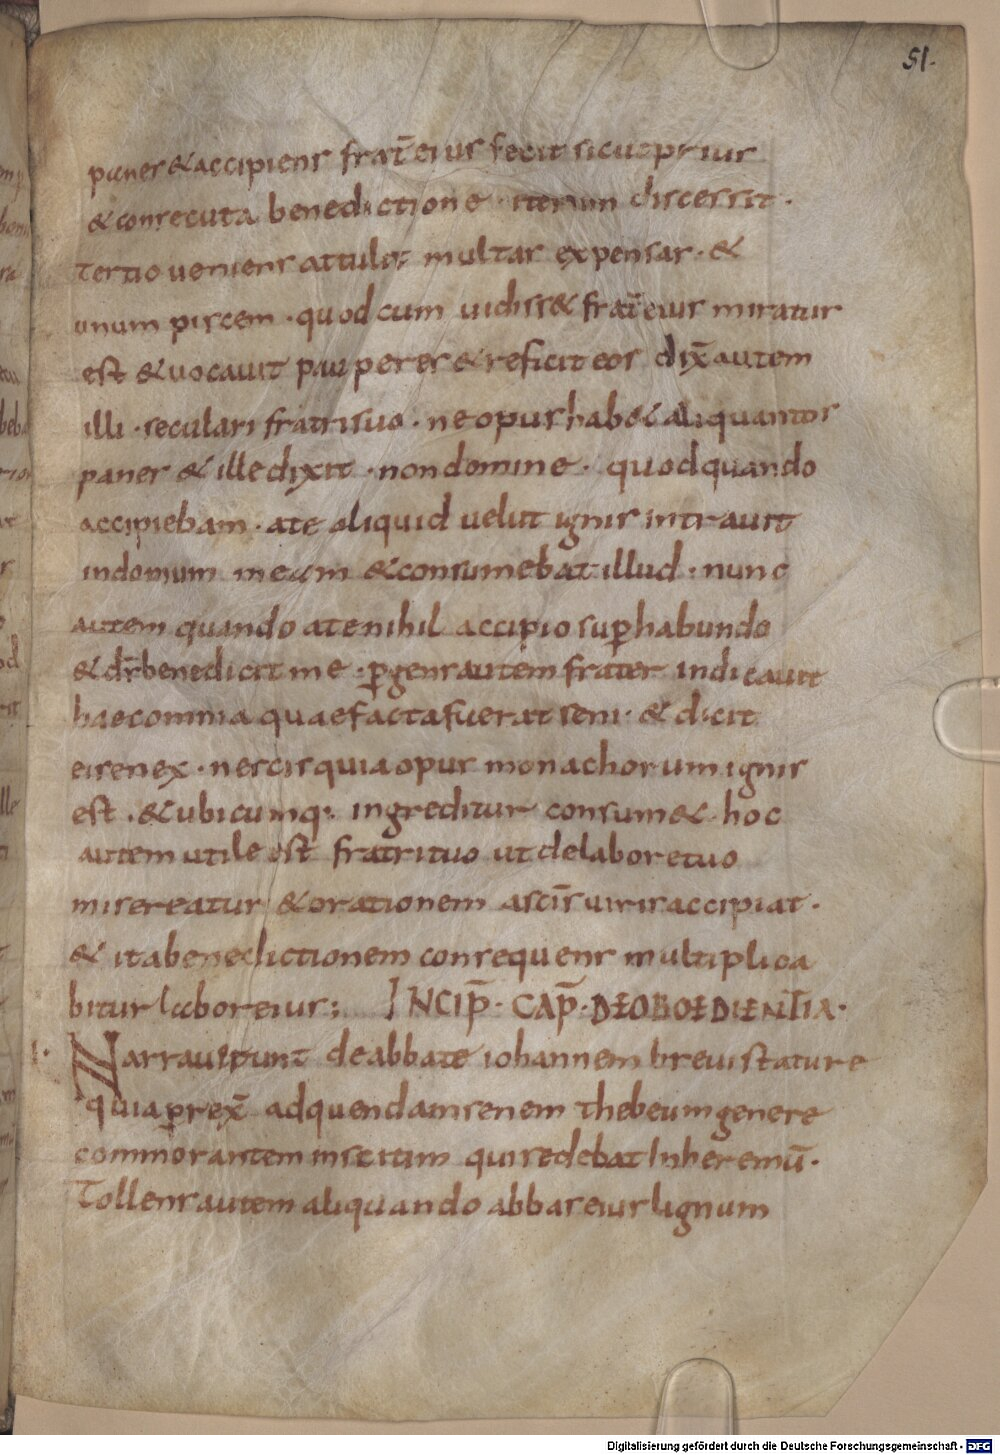 51.
panes & accipiens frat̄ eius fecit sicut prius
& consecuta benedictione · iterum discessit ·
tertio ueniens attulit multas expensas · &
unum piscem · quod cum uidiss& frat̄ eius miratus
est & uocauit pauperes & reficit eos dix̄ autem
illi · seculari fratri suo · ne opus hab& aliquantos
panes & ille dixit · non domine · quod quando
accipiebam · a te aliquid uelut ignis intrauit
in domum meam & consumebat illud · nunc
autem quando a te nihil accipio suꝑhabundo
& dīs benedicit me · ꝑgens autem frater indicauit
haec omnia quae facta fuerat seni · & dicit
ei senex · nescis quia opus monachorum ignis
est · & ubicumq; ingreditur consum& · hoc
autem utile est fratri tuo ut de labore tuo
misereatur & orationem a sc̄īs uiris accipiat ·
& ita benedictionem consequens multiplica
bitur labor eius; INCIP̄ · CAP̄ · DE OBOEDIENTIA ·
I · Narrauerunt de abbate iohannem breui stature
quia ꝑrex̄ ad quendam senem thebeum genere
commorantem in scitim qui sedebat in heremū ·
Tollens autem aliquando abbas eius lignum
Digitalisierung gefördert durch die Deutsche Forschungsgemeinschaft - DFG